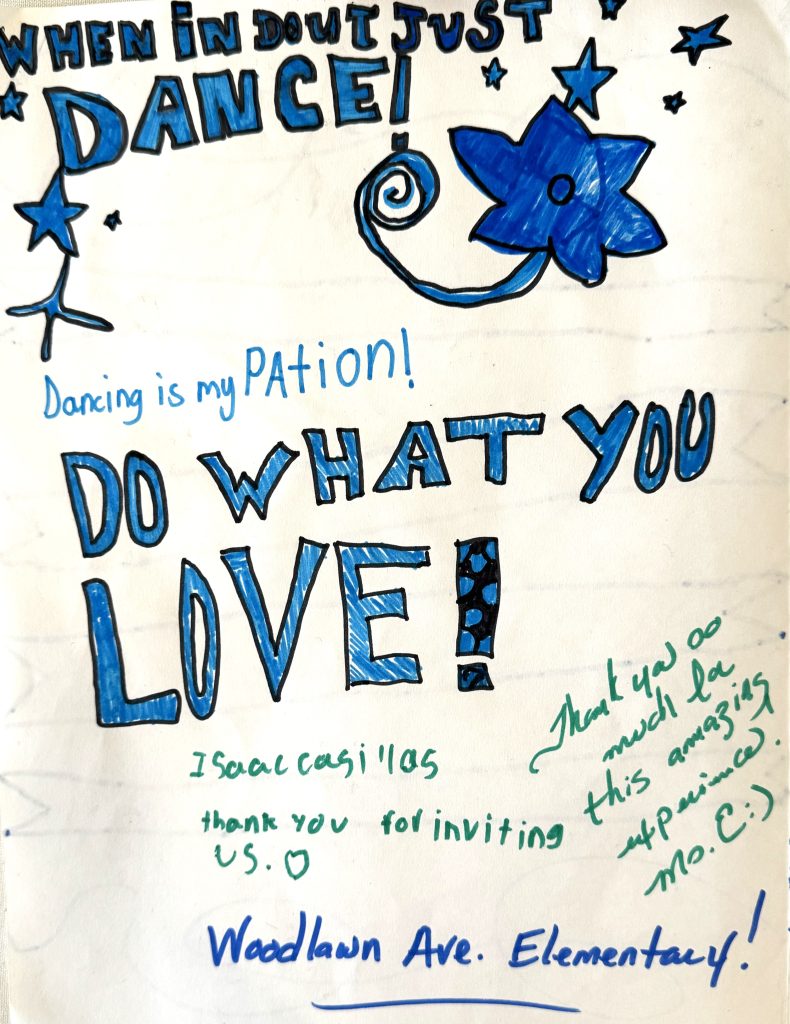 WHEN IN DOUT JUST
DANCE!
Dancing is my PAtion!
DO WHAT YOU
LOVE!
Thank you oo
much for
this amazing
experience.
Ms. C :)
Isaac casillas
thank you for inviting
us. ♡
Woodlawn Ave. Elementary!